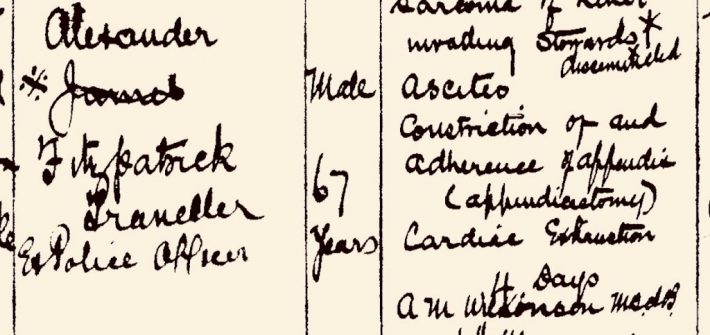 Alexander
* James
Fitzpatrick
Traveller
Ex Police Officer
Male
67
Years
Sarcoma of
invading *
disseminated
Ascites
Constriction of and
adherence of appendix
(appendicectomy)
Cardiac Exhaustion
4 Days
A M Wilkinson